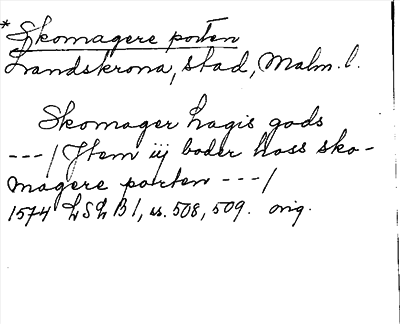 * Skomagere porten
Landskrona, stad, Malm. l.
Skomager Lagis gods
---/ Jtem iij boder hoss sko-
magere porten ---/
1574 LSLB 1, s. 508, 509. orig.